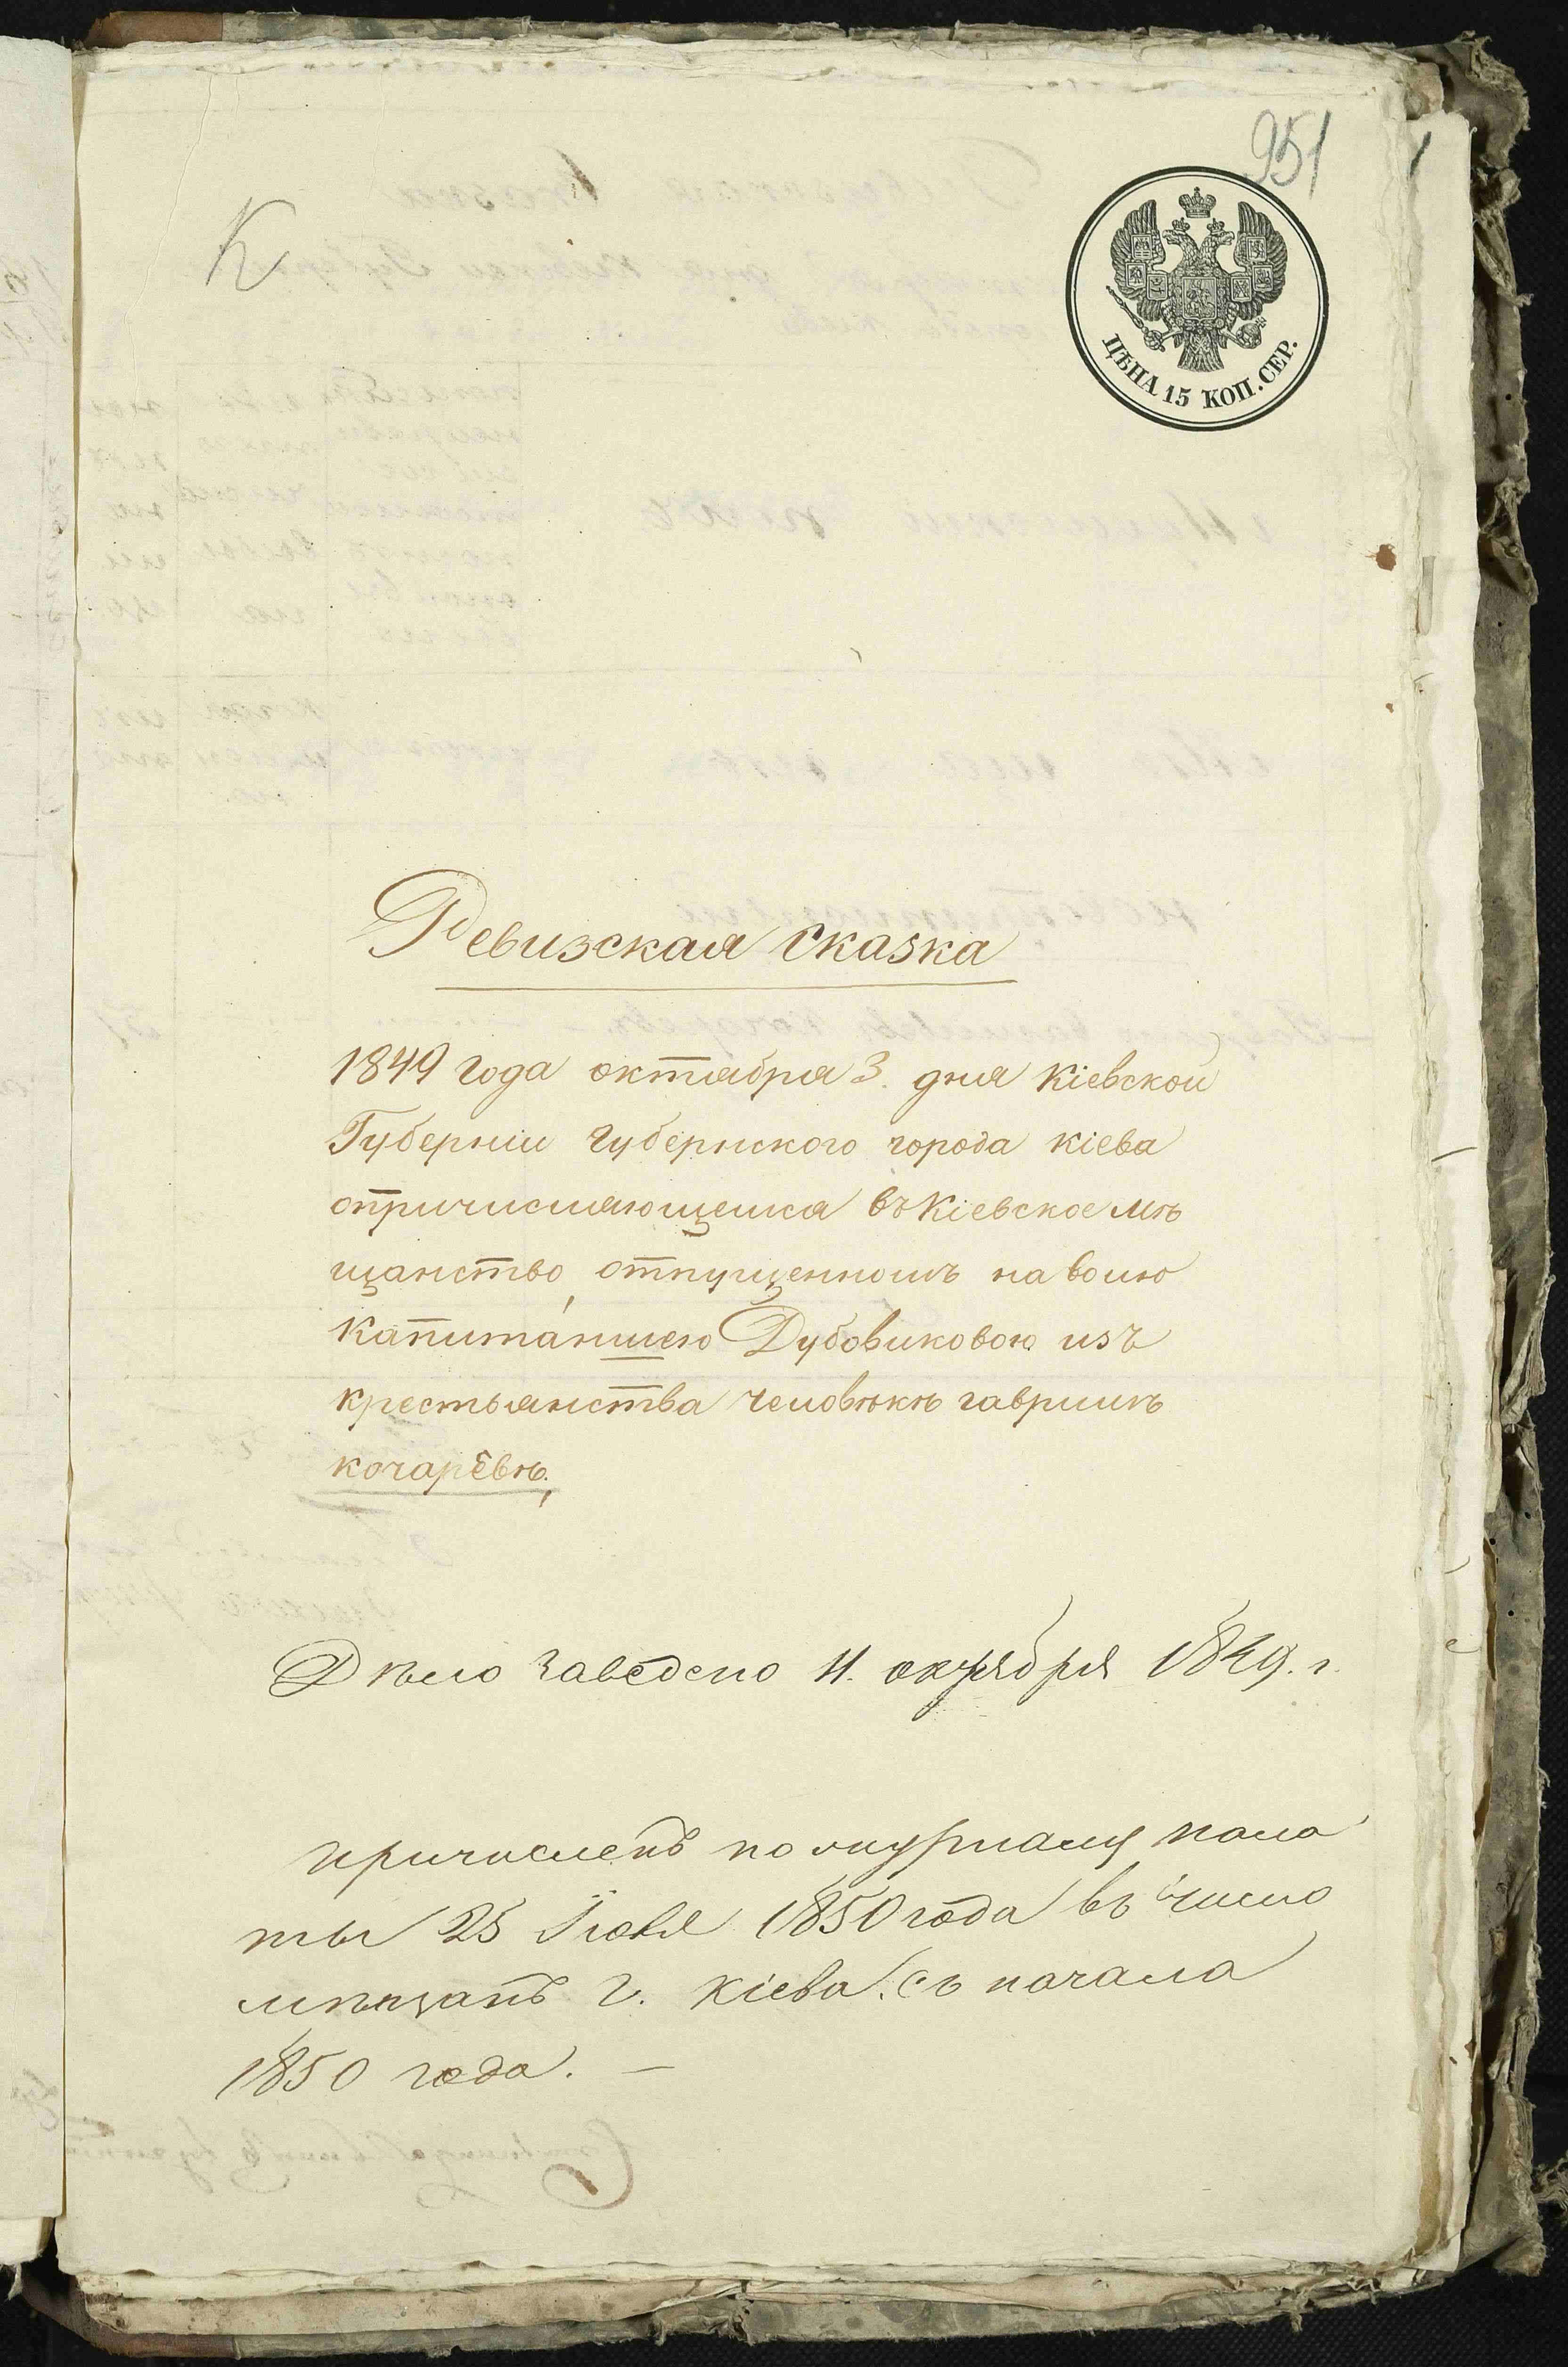 951
К
ЦѢНА 15 КОП. СЕР.
Ревизская сказка
1849 года октября 3. дня Кіевской
Губерніи губернского города Кіева
опричисляющемся въ Кіевское мѣ
щанство, отпущенномъ на волю
капитаншею Дубовиковою изъ
крестьянства человѣкѣ гаврилѣ
кочаревѣ.
Дѣло заведено 11. октября 1849. г.
причисленъ по журналу пала
ты 25 Іюля 1850 года въ число
мѣщанъ г. Кіева. съ начала
1850 года. —